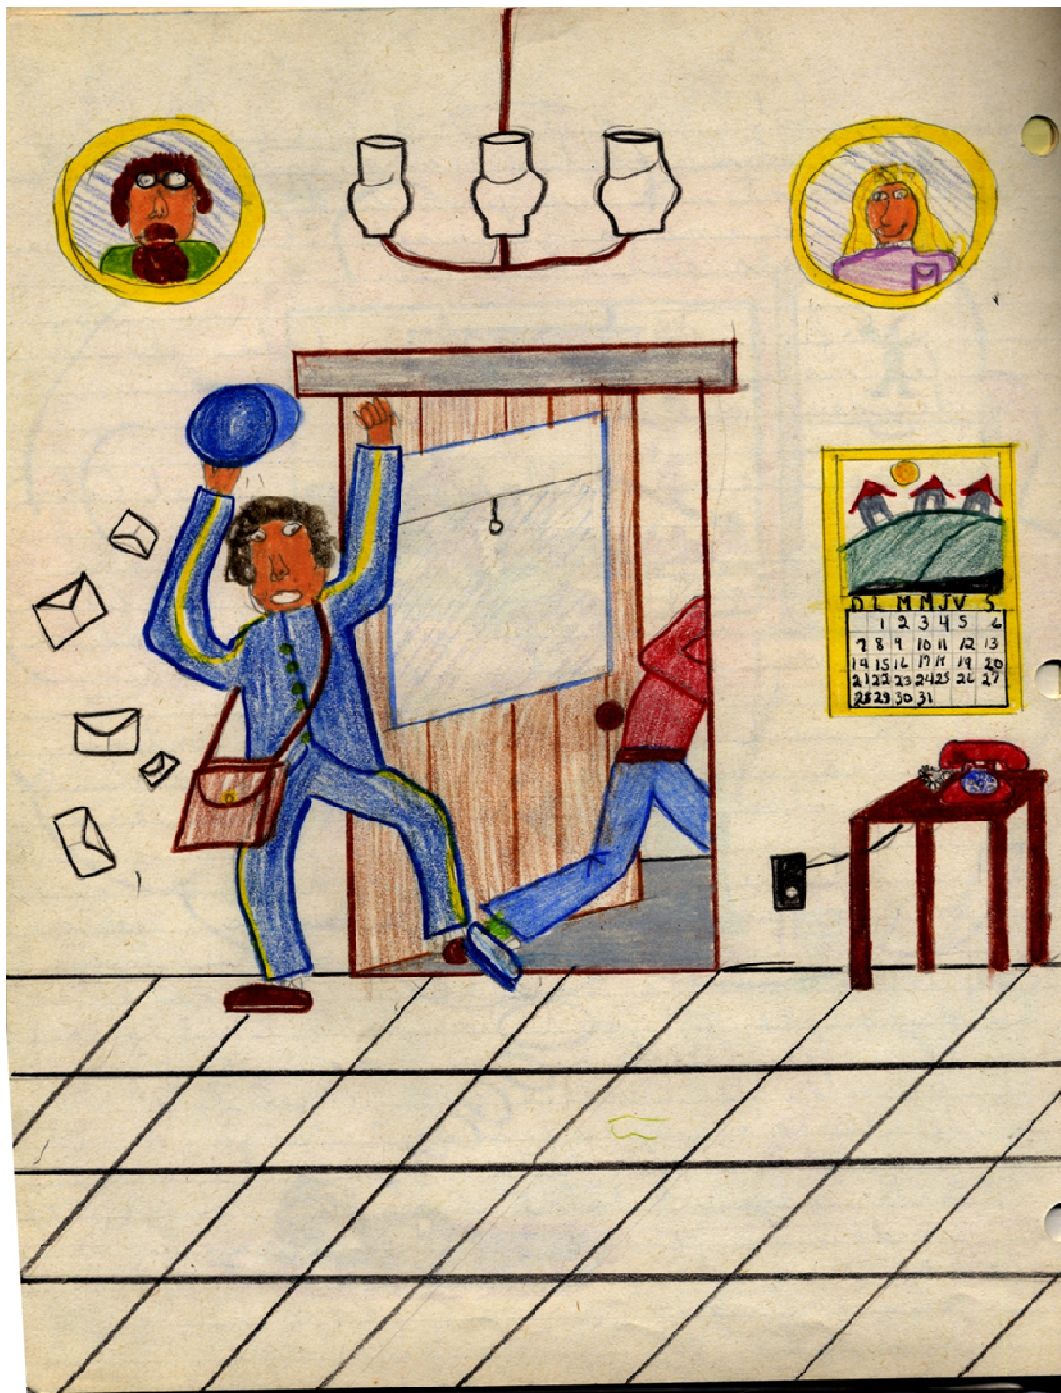 D L M M J V S
1 2 3 4 5 6
7 8 9 10 11 12 13
14 15 16 17 18 19 20
21 22 23 24 25 26 27
28 29 30 31